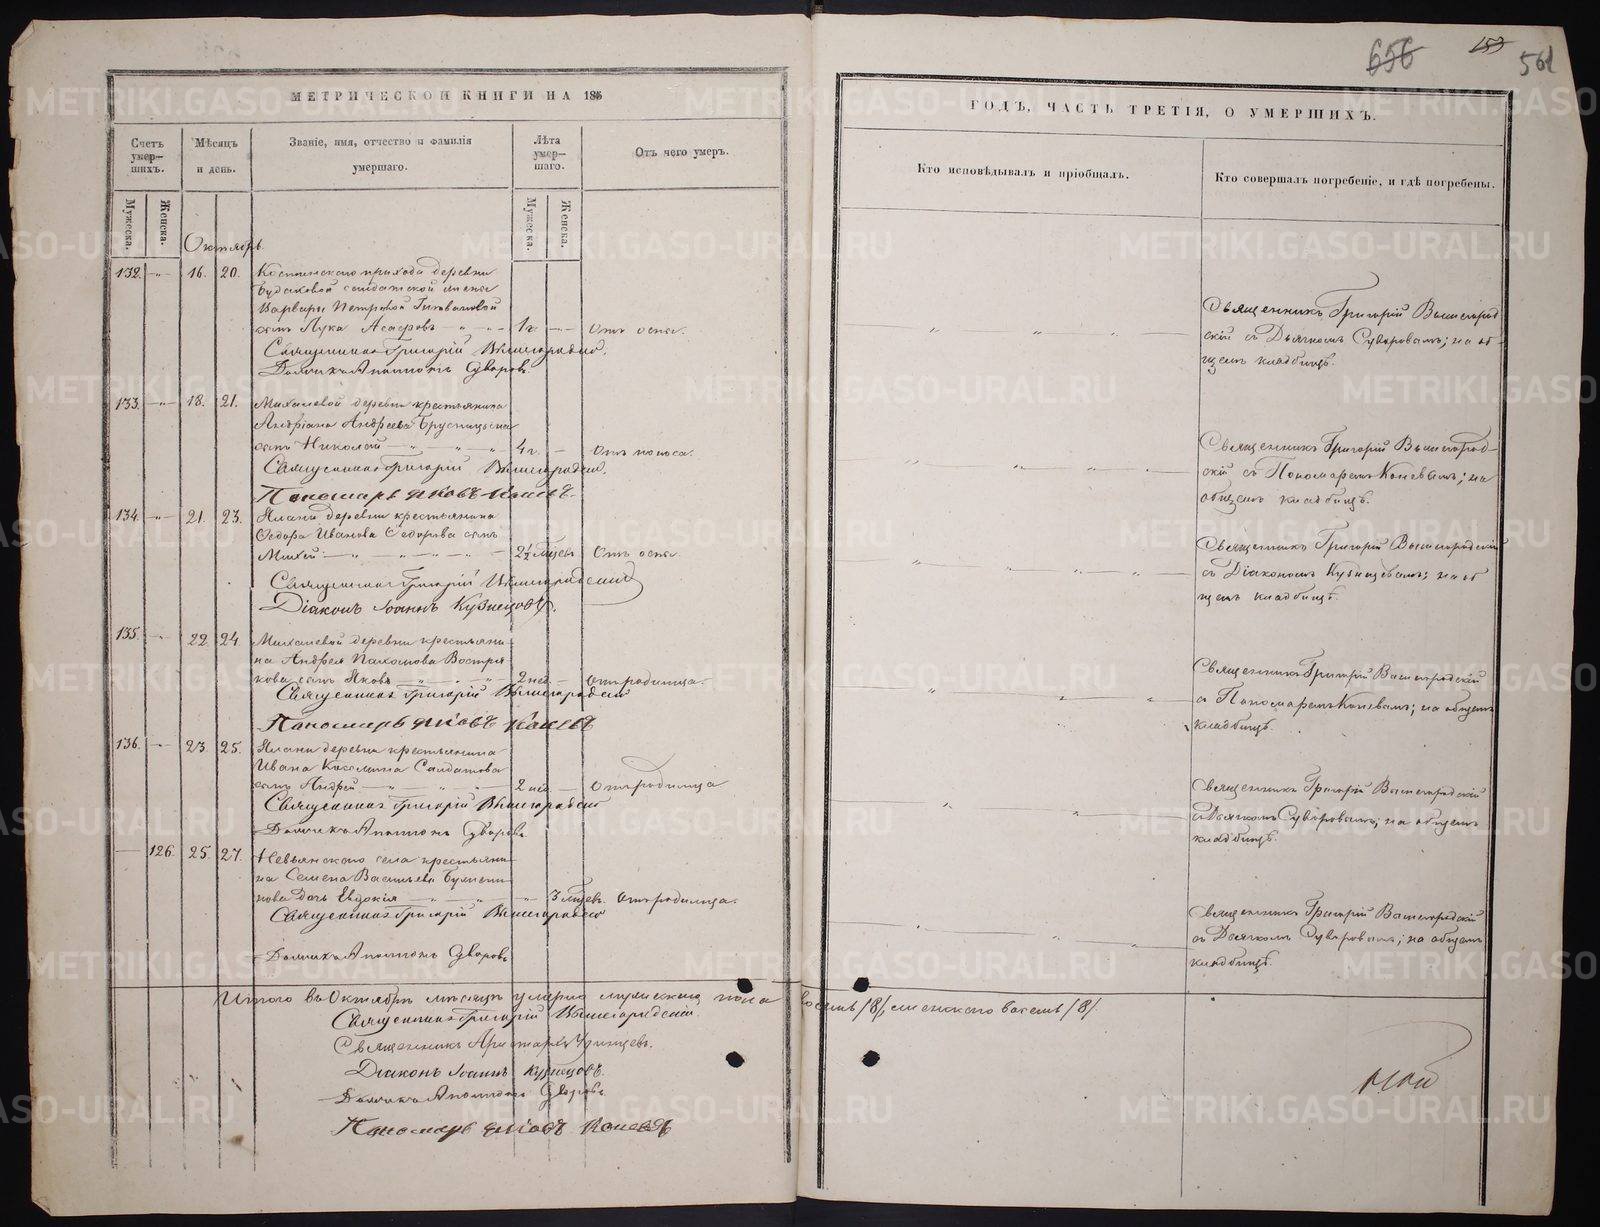 656 153 561
МЕТРИЧЕСКОЙ КНИГИ НА 186
ГОДЪ, ЧАСТЬ ТРЕТІЯ, О УМЕРШИХЪ.
Счетъ умер-шихъ.
Мѣсяцъ и день.
Званіе, имя, отчество и фамилія умершаго.
Лѣта умер-шаго.
Отъ чего умеръ.
Кто исповѣдывалъ и пріобщалъ.
Кто совершалъ погребеніе, и гдѣ погребены.
Мужеска. Женска.
Мужеска. Женска.
Октябрь
132. 16. 20. прихода деревни
солдатской жены
Варвары Петровой
сынъ Лука 1 г. Отъ оспы.
Священникъ Григорій Вышегородскій
Священникъ Григорій Вышегород-
скій съ Дьячкомъ Суворовымъ; на об-
щемъ кладбищѣ.
133. 18. 21. Михалевой деревни крестьянина
Андріана Андреева Брусницына
сынъ Николай 4 г. Отъ поноса.
Священникъ Григорій Вышегородскій
Пономарь Яковъ Коневъ.
Священникъ Григорій Вышегород-
скій съ Пономаремъ Коневымъ; на
общемъ кладбищѣ.
134. 21. 23. Ялани деревни крестьянина
Федора Иванова Федорова сынъ
Михей 2½ мѣсяц. Отъ оспы.
Священникъ Григорій Вышегородскій
Діаконъ Іоаннъ Кузнецовъ.
Священникъ Григорій Вышегородскій
съ Діакономъ Кузнецовымъ; на об
щемъ кладбищѣ.
135. 22. 24. Михалевой деревни крестьяни-
на Андрея Пахомова Востря
кова сынъ Яковъ 2 нед. Отъ родимца.
Священникъ Григорій Вышегородскій
Пономарь Яковъ Коневъ
Священникъ Григорій Вышегородскій
съ Пономаремъ Коневымъ; на общемъ
кладбищѣ.
136. 23. 25. Ялани деревни крестьянина
Ивана Солдатова
сынъ Андрей 2 нед. Отъ родимца
Священникъ Григорій Вышегородскій
Священникъ Григорій Вышегородскій
съ Дьячкомъ Суворовымъ; на общемъ
кладбищѣ.
126. 25. 27. Невьянскаго села крестьяни-
на Семена Васильева
дочь Евдокія 3 мѣсяц. Отъ родимца.
Священникъ Григорій Вышегородскій
Священникъ Григорій Вышегородскій
съ Дьячкомъ Суворовымъ; на общемъ
кладбищѣ.
Итого въ Октябрѣ мѣсяцѣ умерло мужескаго пола восемь /8/, женскаго восемь /8/
Священникъ Григорій Вышегородскій.
Священникъ
Діаконъ Іоаннъ Кузнецовъ.
Пономарь Яковъ Коневъ
METRIKI.GASO-URAL.RU